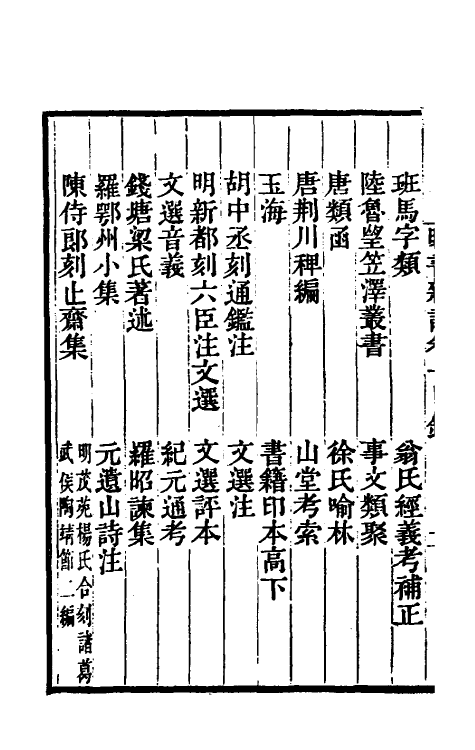 班馬字類　翁氏經義考補正
陸魯望笠澤叢書　事文類聚
唐類函　徐氏喻林
唐荆川稗編　山堂考索
玉海　書籍印本高下
胡中丞刻通鑑注　文選注
明新都刻六臣注文選　文選評本
文選音義　紀元通考
錢塘梁氏著述　羅昭諫集
羅鄂州小集　元遺山詩注
陳侍郎刻止齋集　明茂苑楊氏合刻諸葛
武侯陶靖節二編